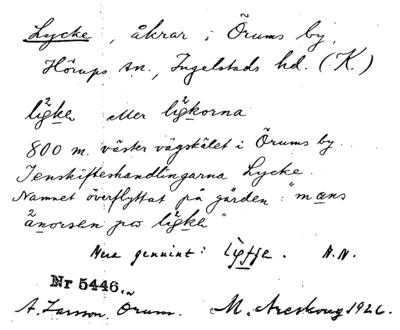 Lycke, åkrar i Örums by,
Hörups sn., Ingelstads hd. (K.)
li2gke eller li2gkorna
800 m. väster vägskälet i Örums by.
I enskifteshandlingarna Lycke.
Namnet överflyttat på gården: "måns
ånorsen på li2gke"
Mera genuint: N.N.
Nr 5446.
A. Larsson, Örum. M. Areskoug 1926.